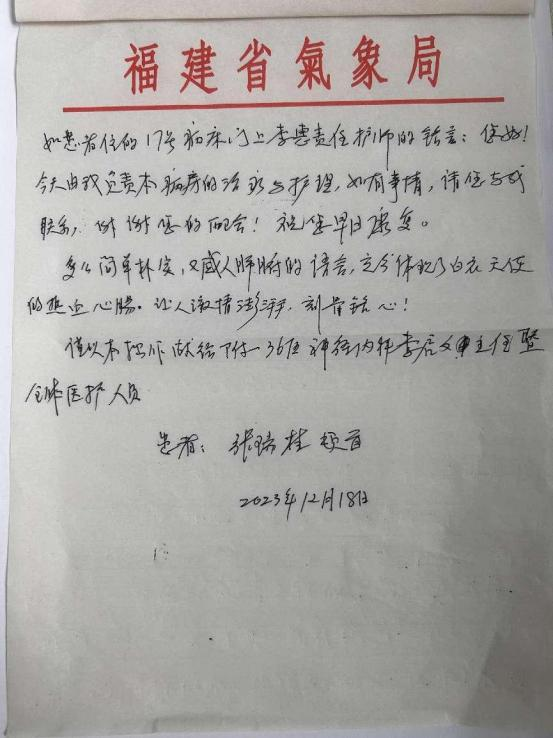 福建省氣象局
如患者住的17号病床门上李惠责任护师的铭言：您好！
今天由我负责本病房的治疗与护理，如有事情，请您与我
联系，谢谢您的配合！祝您早日康复。
多么简单朴实，又感人肺腑的语言，充分体现了白衣天使
的热血心腸。让人激情澎湃，刻骨铭心！
仅以本拙作献给附一36区神经内科李启文主任暨
全体医护人员
患者：张瑞桂 顿首
2023年12月18日